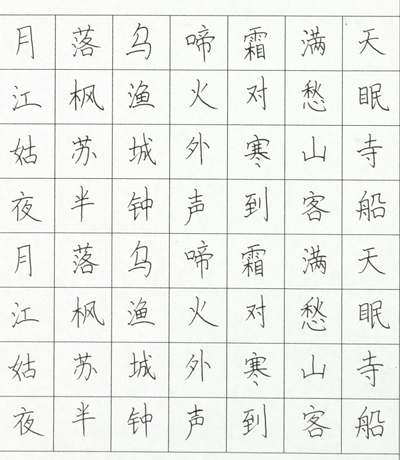 月落乌啼霜满天
江枫渔火对愁眠
姑苏城外寒山寺
夜半钟声到客船
月落乌啼霜满天
江枫渔火对愁眠
姑苏城外寒山寺
夜半钟声到客船